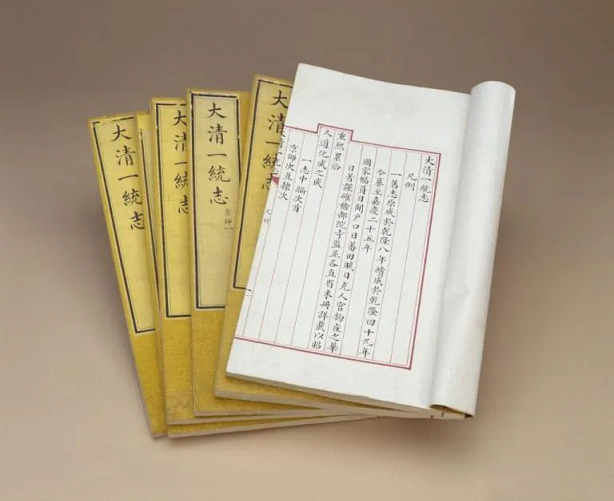 大清一統志
凡例
一舊志原成於乾隆八年續成於乾隆四十九年
今纂至嘉慶二十五年
國家幅員日闢戶口日蕃田賦日充人官物產之華
日著謹確稽部院寺監並各直省來冊詳載以昭
重熙累洽
久道化成之盛
一志中編次首
京師次直隸次
凡例
大清
大清一統志
京師一
大清一統志
大清一統志